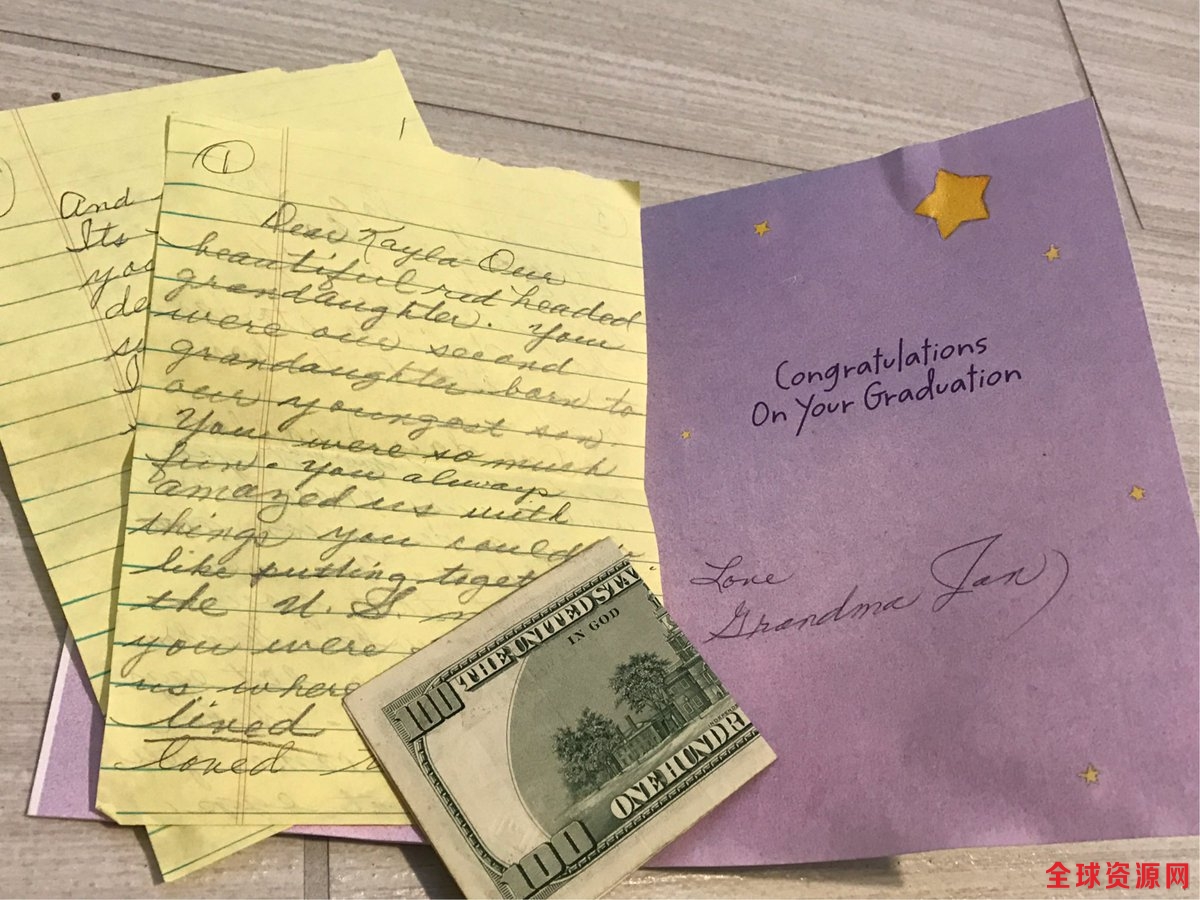 And
Its
you
de
su
I
①
Dear Kayla Our
beautiful red headed
grandaughter. You
were our second
grandaughter born to
our youngest son
You were so much
fun. You always
amazed us with
things you could
like putting toget
the U. S.
you were
us where
lived
loved
THE UNITED STA
IN GOD
100
ONE HUNDR
100
Congratulations
On Your Graduation
Love
Grandma Jan
全球资源网